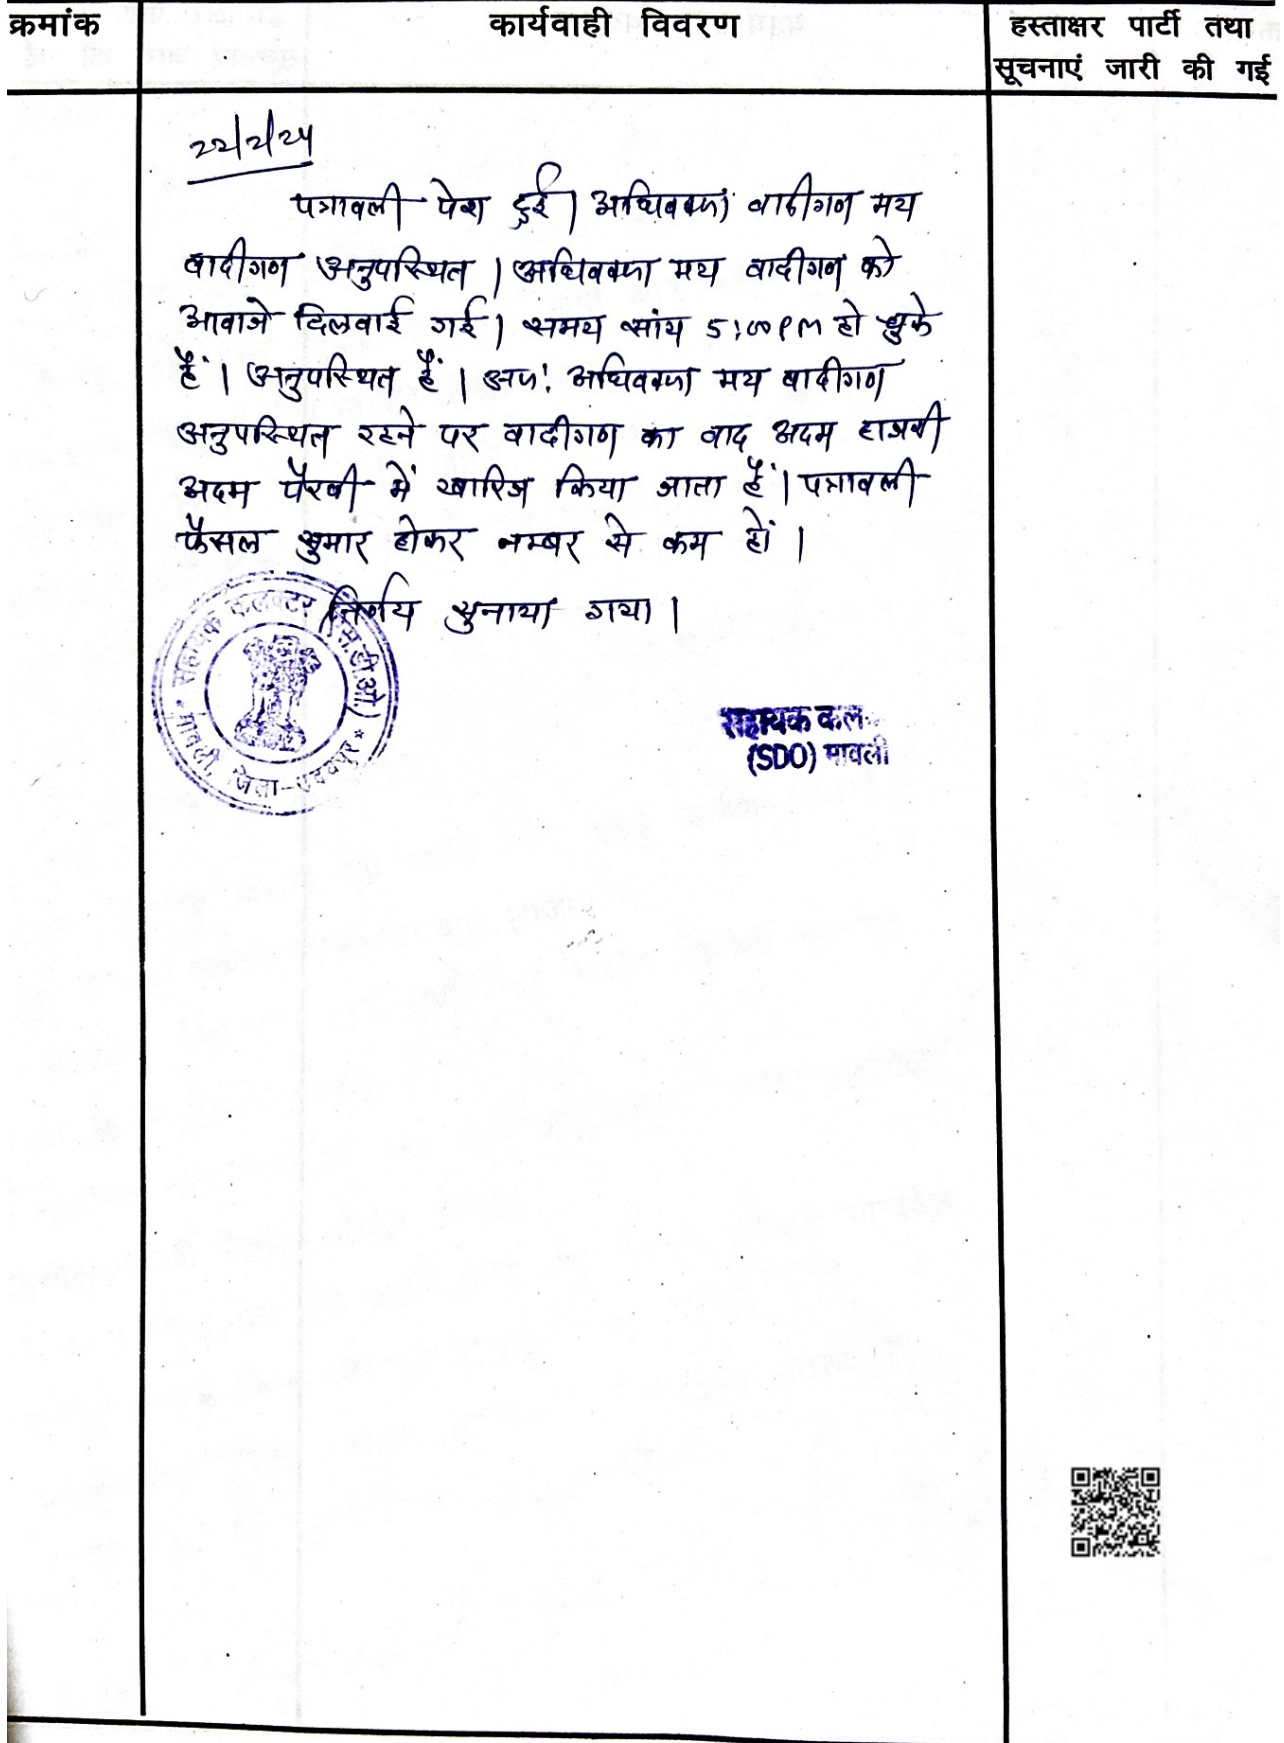 क्रमांक
कार्यवाही विवरण
हस्ताक्षर पार्टी तथा
सूचनाएं जारी की गई
22/2/24
पत्रावली पेश हुई। अधिवक्ता वादीगण मय
वादीगण अनुपस्थित। अधिवक्ता मय वादीगण को
आवाजे दिलवाई गई। समय सांय 5:00 PM हो चुके
हैं। अनुपस्थित हैं। अतः अधिवक्ता मय वादीगण
अनुपस्थित रहने पर वादीगण का वाद अदम हाजरी
अदम पैरवी में खारिज किया जाता हैं। पत्रावली
फैसल शुमार होकर नम्बर से कम हों।
निर्णय सुनाया गया।
सहायक कलक्टर (एस.डी.ओ.)
मावली, जिला-उदयपुर
सहायक कल
(SDO) मावली